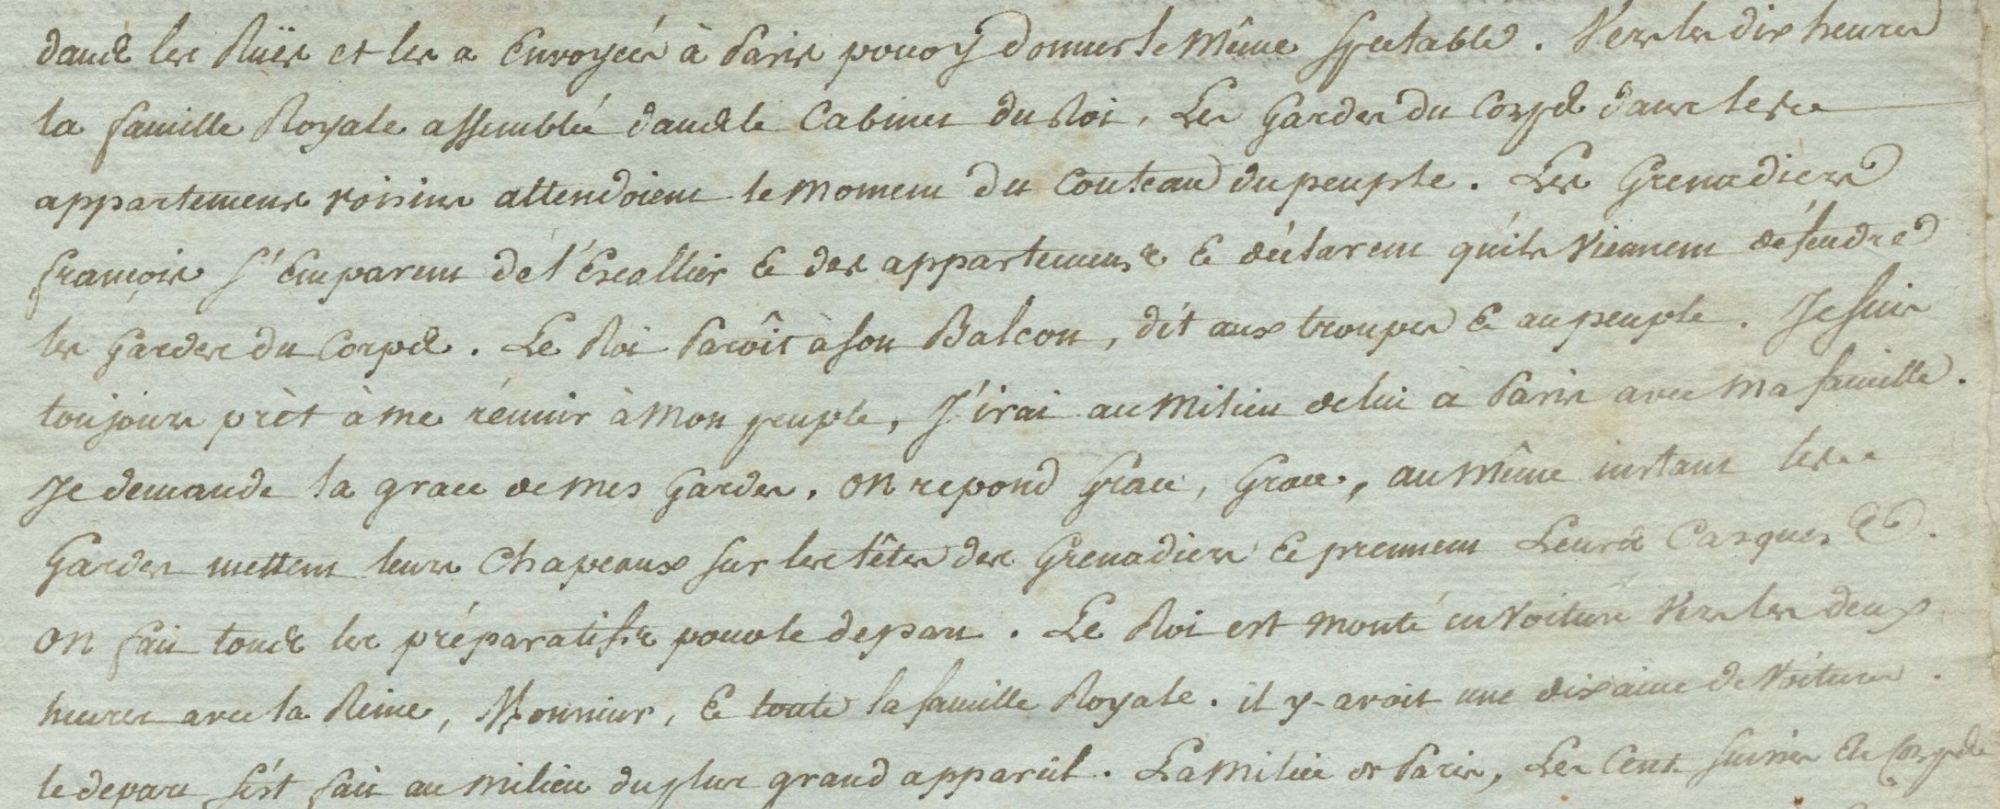 dans les Rües et les a Envoyées à Paris pour y donner le Même spectable. Vers les dix heures
la famille Royale assemblée dans le Cabinet du Roi, Les Gardes du Corps dans les
appartemens voisins attendoient le moment du Couteau du peuple. Les Grenadiers
françois s'Emparent de l'Escallier & des appartemens & déclarent qu'ils Viennent défendre
les Gardes du Corps. Le Roi Paroît à son Balcon, dit aux troupes & au peuple. Je suis
toujours prèt à me réunir à Mon peuple, J'irai au Milieu de lui à Paris avec Ma famille.
Je demande la grace de mes Gardes. on repond Grace, Grace, au Même instant les
Gardes mettent leurs Chapeaux sur les têtes des Grenadiers & prennent Leurs Casques &.
on fait tous les préparatifs pour le depart. Le Roi est monté en Voiture Vers les deux
heures avec la Reine, Monsieur, & toute la famille Royale. il y-avoit une dixaine de Voitures.
le depart s'ést fait au milieu du plus grand appareil. La Milice de Paris, Les Cent Suisses du Corps